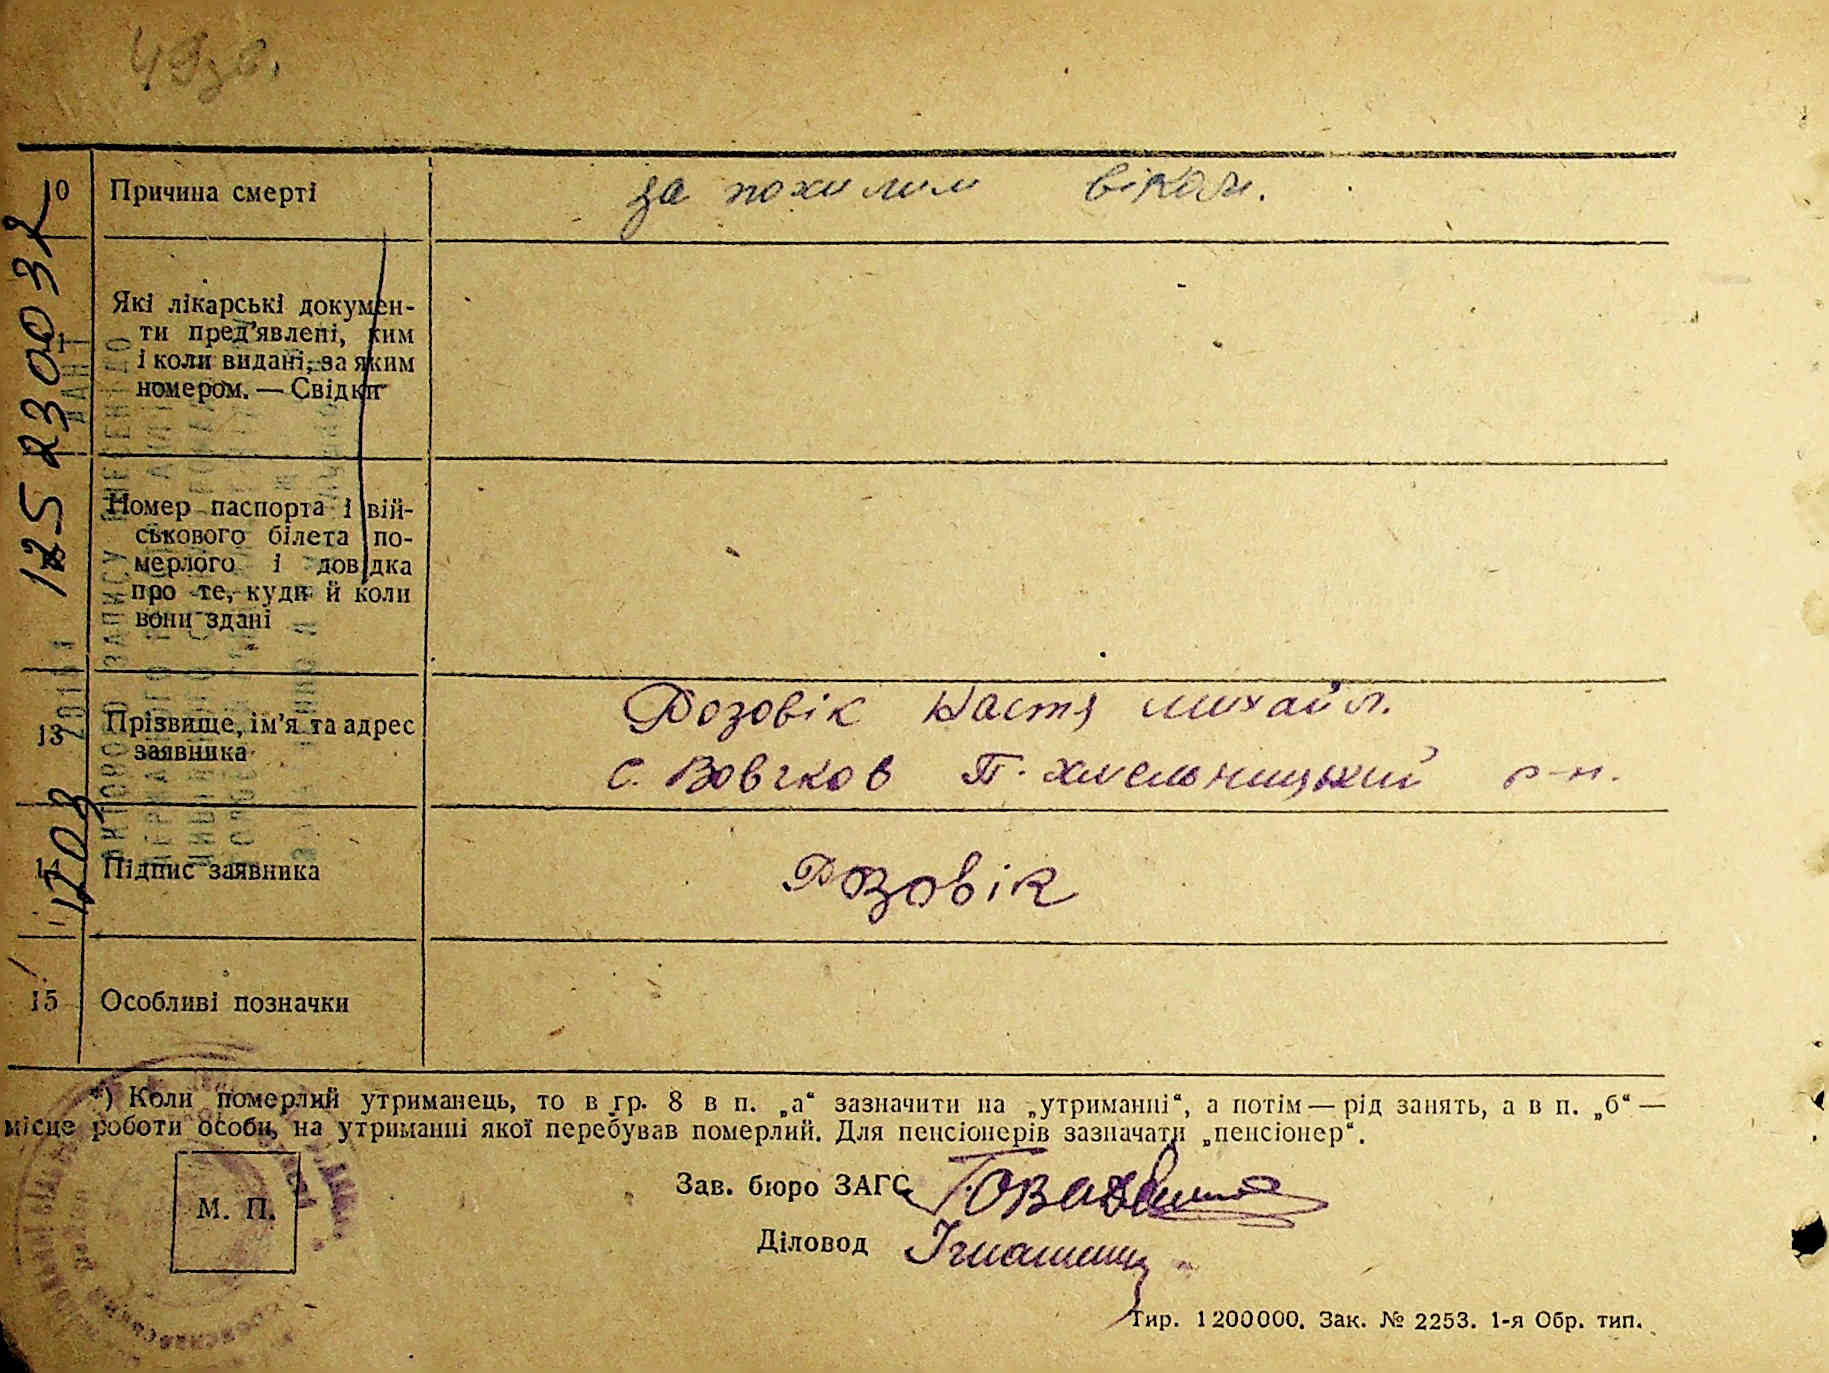 10 Причина смерті за похилим віком.
Які лікарські докумен-
ти пред'явлені, ким
і коли видані, за яким
номером. — Свідки
Номер паспорта і вій-
ськового білета по-
мерлого і довідка
про те, куди й коли
вони здані
13 Прізвище, ім'я та адрес
заявника
Розовік Настя михайл.
с. Вовчков П. хмельницький р-н.
14 Підпис заявника Розовік
15 Особливі позначки
*) Коли померлий утриманець, то в гр. 8 в п. „а“ зазначити на „утриманні“, а потім — рід занять, а в п. „б“ —
місце роботи особи, на утриманні якої перебував померлий. Для пенсіонерів зазначати „пенсіонер“.
М. П.
Зав. бюро ЗАГС
Діловод
Тир. 1200000. Зак. № 2253. 1-я Обр. тип.